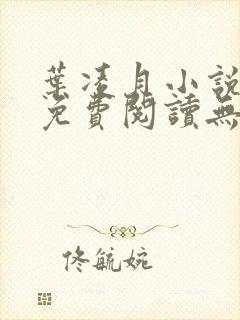 葉凌月小說
免費閱讀無
佟毓婉